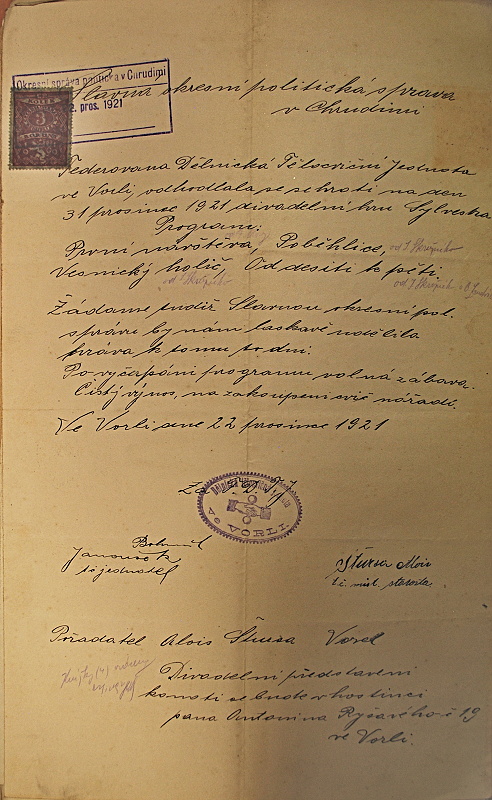 Okresní správa politická v Chrudimi
2. pros. 1921
KOLEK
3
Slavná okresní politická správa
v Chrudimi
Federovaná Dělnická Tělocvičná Jednota
ve Vorli, odhodlala se sehráti na den
31 prosince 1921 divadelní hru Sylvestra
Program:
První návštěva, Poběhlice,
Vesnický holič, Od desíti k pěti.
Žádáme tudíž Slavnou okresní pol.
správu by nám laskavě udělila
práva k tomu to dni.
Po vyčapání programu volná zábava.
Čistý výnos, na zakoupení cvič nářadí.
Ve Vorli dne 22 prosince 1921
Za F. D. T. J.
Ve VORLI.
Bohumil
Janoušek
t.č. jednatel
Štursa Alois
t.č. míst. starosta
Pořadatel Alois Štursa Vorel
Divadelní představení
konati se bude v hostinci
pana Antonína Ryšavého č 19
ve Vorli.